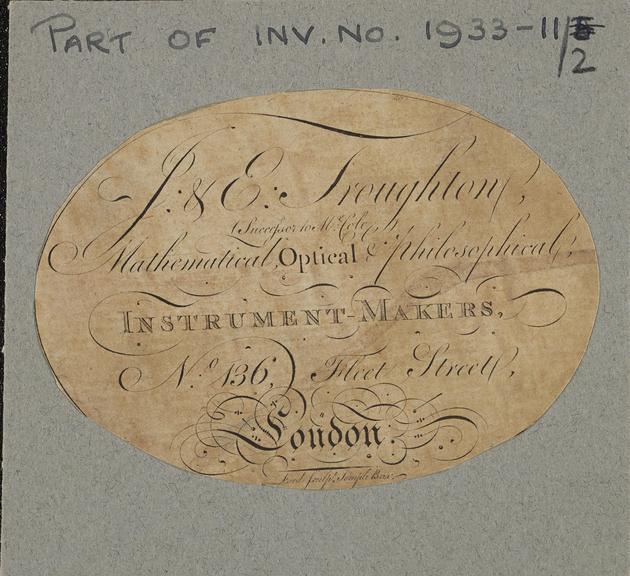 PART OF INV. NO. 1933-11/
2
J: & E: Troughton,
(Successor to Mr. Cole)
Mathematical, Optical & Philosophical,
INSTRUMENT-MAKERS,
No. 136, Fleet Street,
London.
sculpt. Temple Bar.